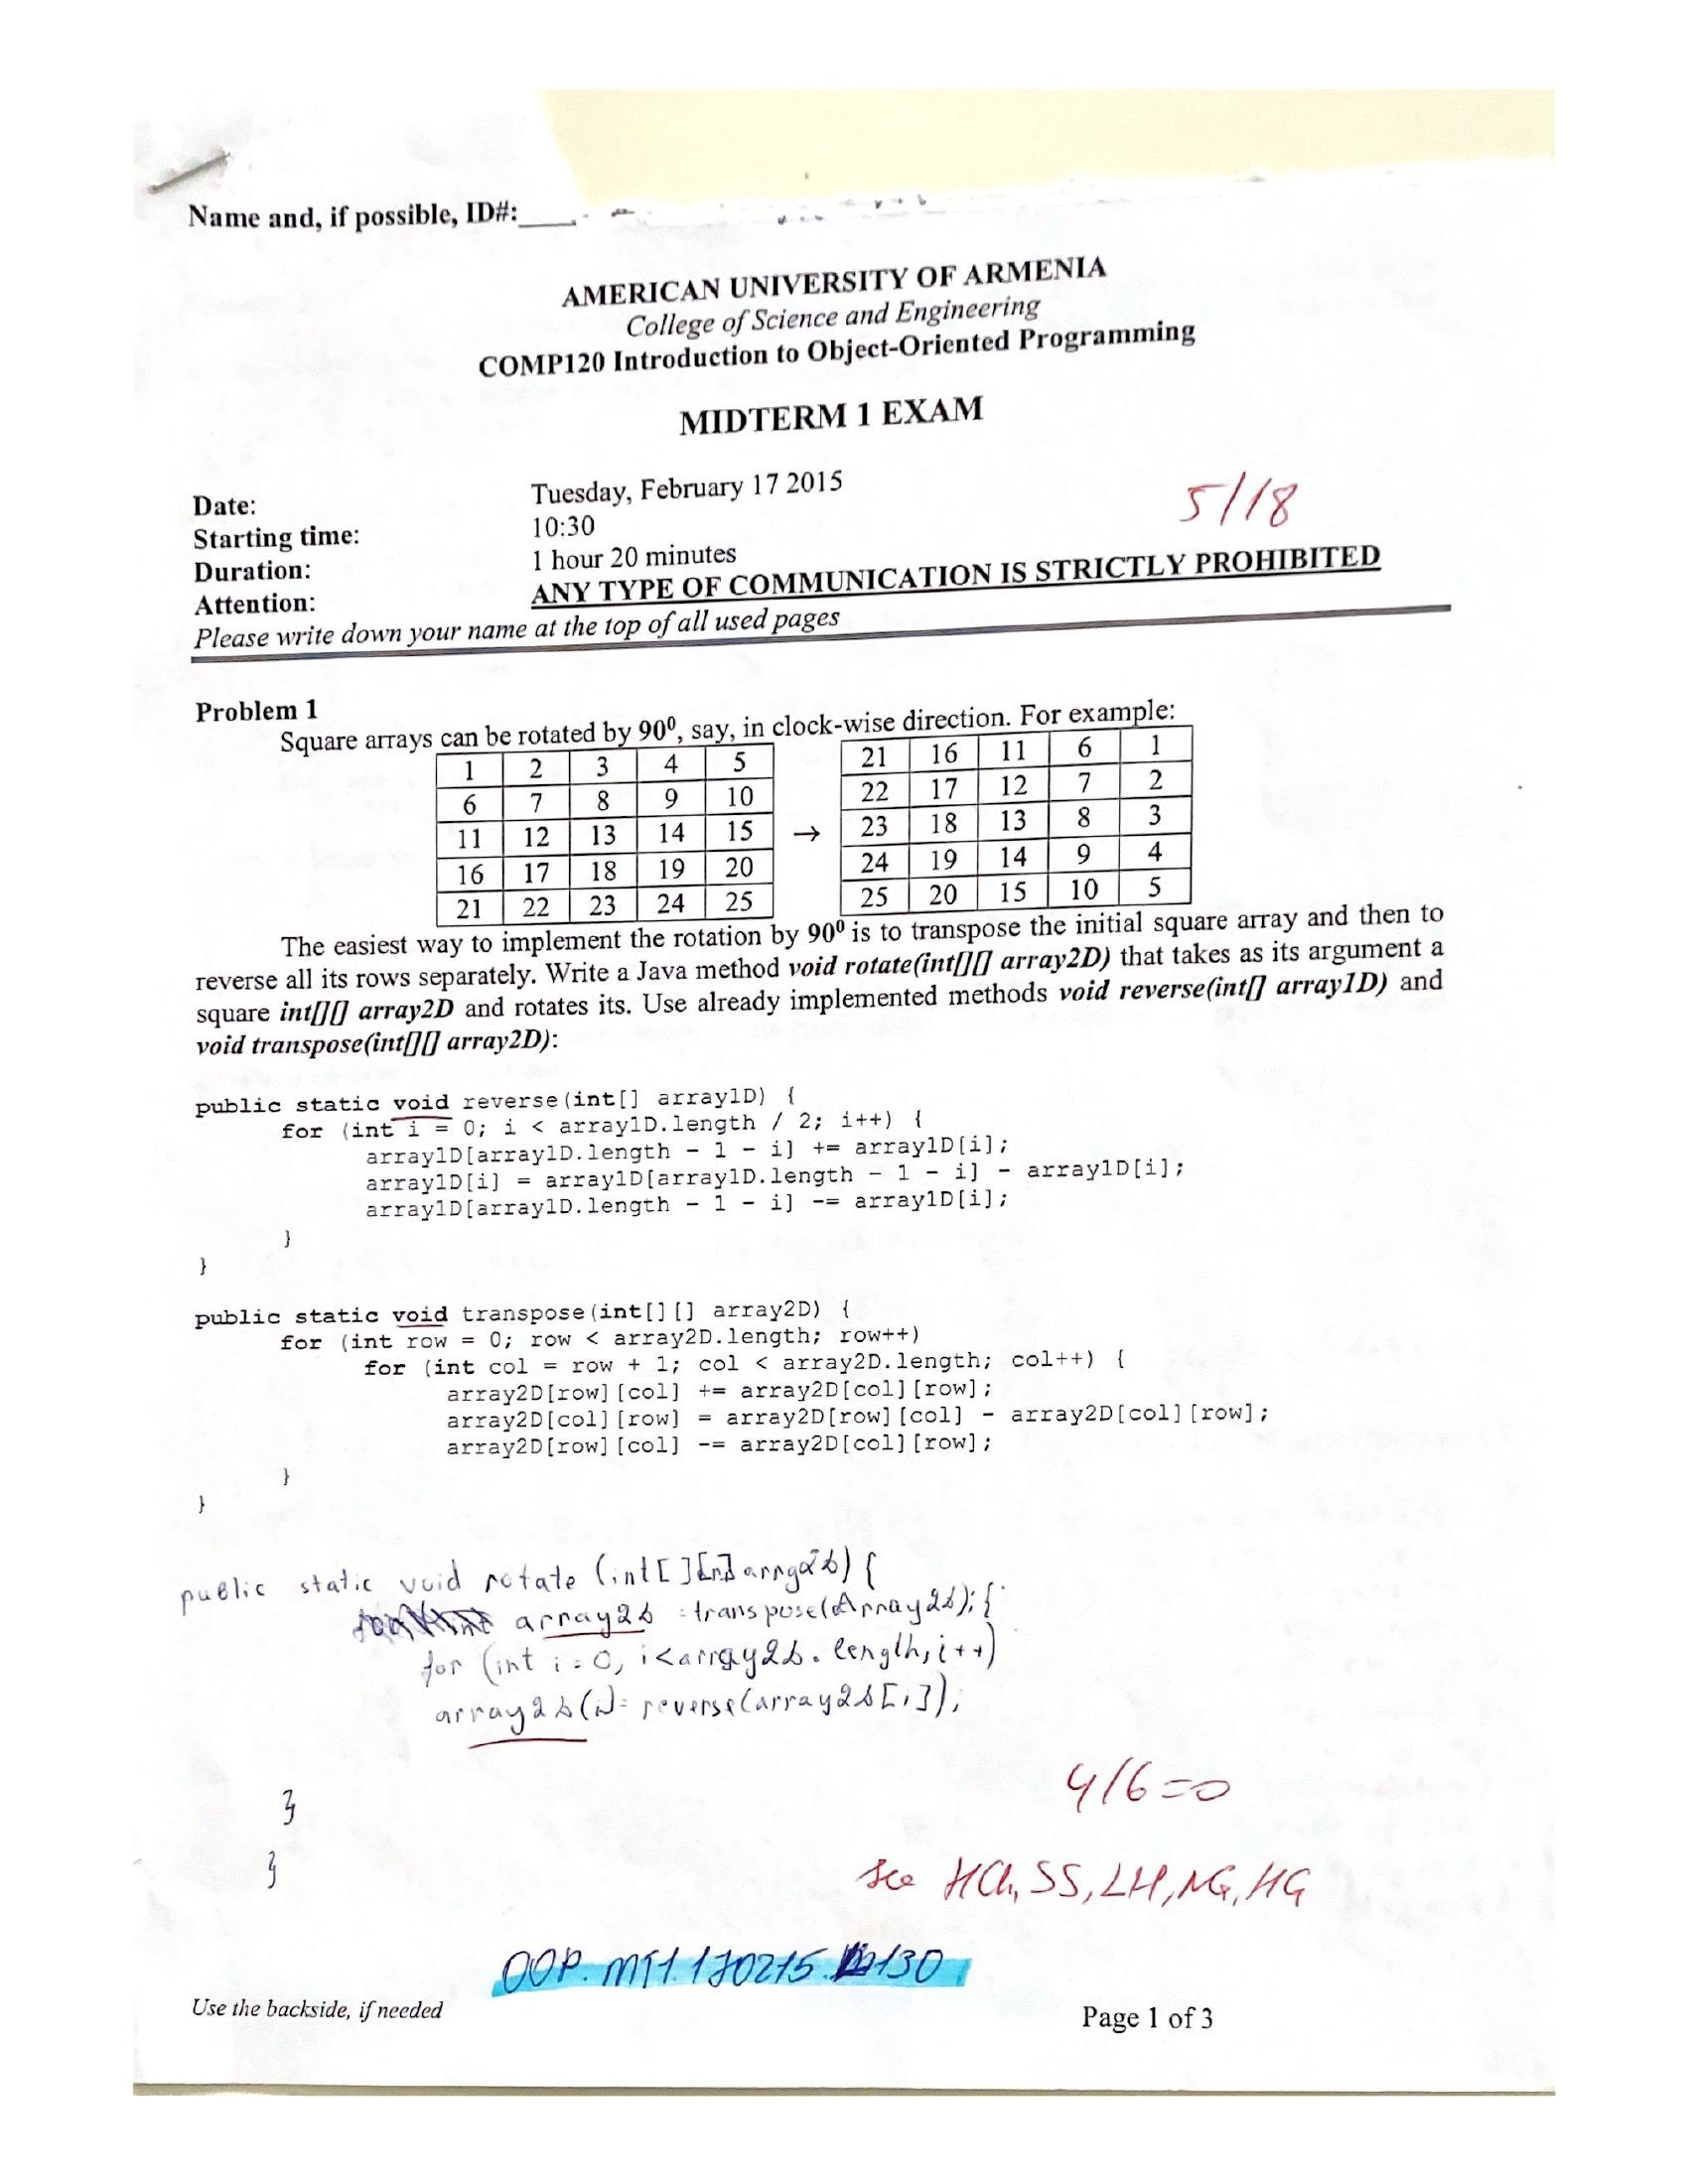 Name and, if possible, ID#:
AMERICAN UNIVERSITY OF ARMENIA
College of Science and Engineering
COMP120 Introduction to Object-Oriented Programming
MIDTERM 1 EXAM
Date: Tuesday, February 17 2015
5/18
Starting time: 10:30
Duration: 1 hour 20 minutes
Attention: ANY TYPE OF COMMUNICATION IS STRICTLY PROHIBITED
Please write down your name at the top of all used pages
Problem 1
Square arrays can be rotated by 90⁰, say, in clock-wise direction. For example:
1 2 3 4 5 21 16 11 6 1
6 7 8 9 10 22 17 12 7 2
11 12 13 14 15 → 23 18 13 8 3
16 17 18 19 20 24 19 14 9 4
21 22 23 24 25 25 20 15 10 5
The easiest way to implement the rotation by 90⁰ is to transpose the initial square array and then to
reverse all its rows separately. Write a Java method void rotate(int[][] array2D) that takes as its argument a
square int[][] array2D and rotates its. Use already implemented methods void reverse(int[] array1D) and
void transpose(int[][] array2D):
public static void reverse(int[] array1D) {
for (int i = 0; i < array1D.length / 2; i++) {
array1D[array1D.length - 1 - i] += array1D[i];
array1D[i] = array1D[array1D.length - 1 - i] - array1D[i];
array1D[array1D.length - 1 - i] -= array1D[i];
}
}
public static void transpose(int[][] array2D) {
for (int row = 0; row < array2D.length; row++)
for (int col = row + 1; col < array2D.length; col++) {
array2D[row][col] += array2D[col][row];
array2D[col][row] = array2D[row][col] - array2D[col][row];
array2D[row][col] -= array2D[col][row];
}
}
public static void rotate (int[ ][
array2D = transpose(Array2D); {
for (int i = 0, i<array2D. length, i++)
array2D(i)= reverse(array2D[i]),
}
}
4/6=0
see HCh, SS, LH, NG, HG
OOP. MT1. 170215. 130
Use the backside, if needed
Page 1 of 3